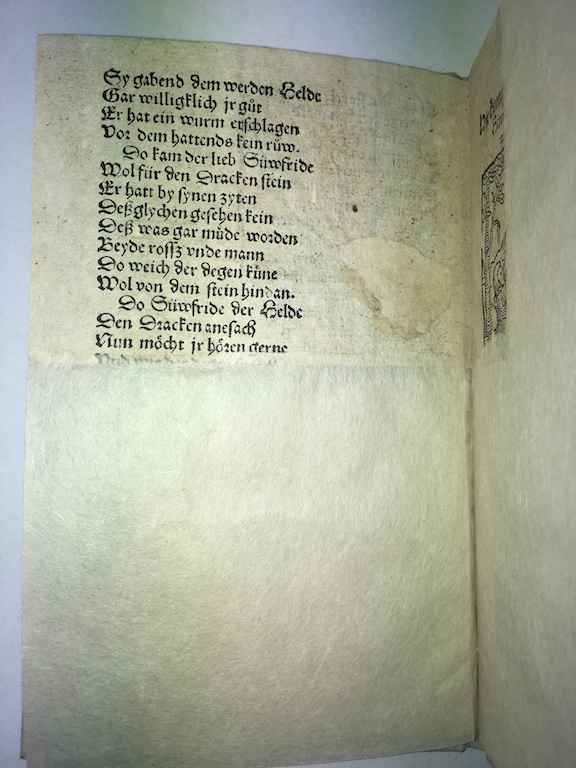 Sy gabend dem werden Helde
Gar willigklich jr gůt
Er hat ein wurm erschlagen
Vor dem hattends kein růw.
Do kam der lieb Süwfride
Wol für den Dracken stein
Er hatt by synen zyten
Deßglychen gesehen kein
Deß was gar müde worden
Beyde rossz vnde mann
Do weich der degen küne
Wol von dem stein hindan.
Do Süwfride der Helde
Den Dracken anesach
Nun möcht jr hören gerne